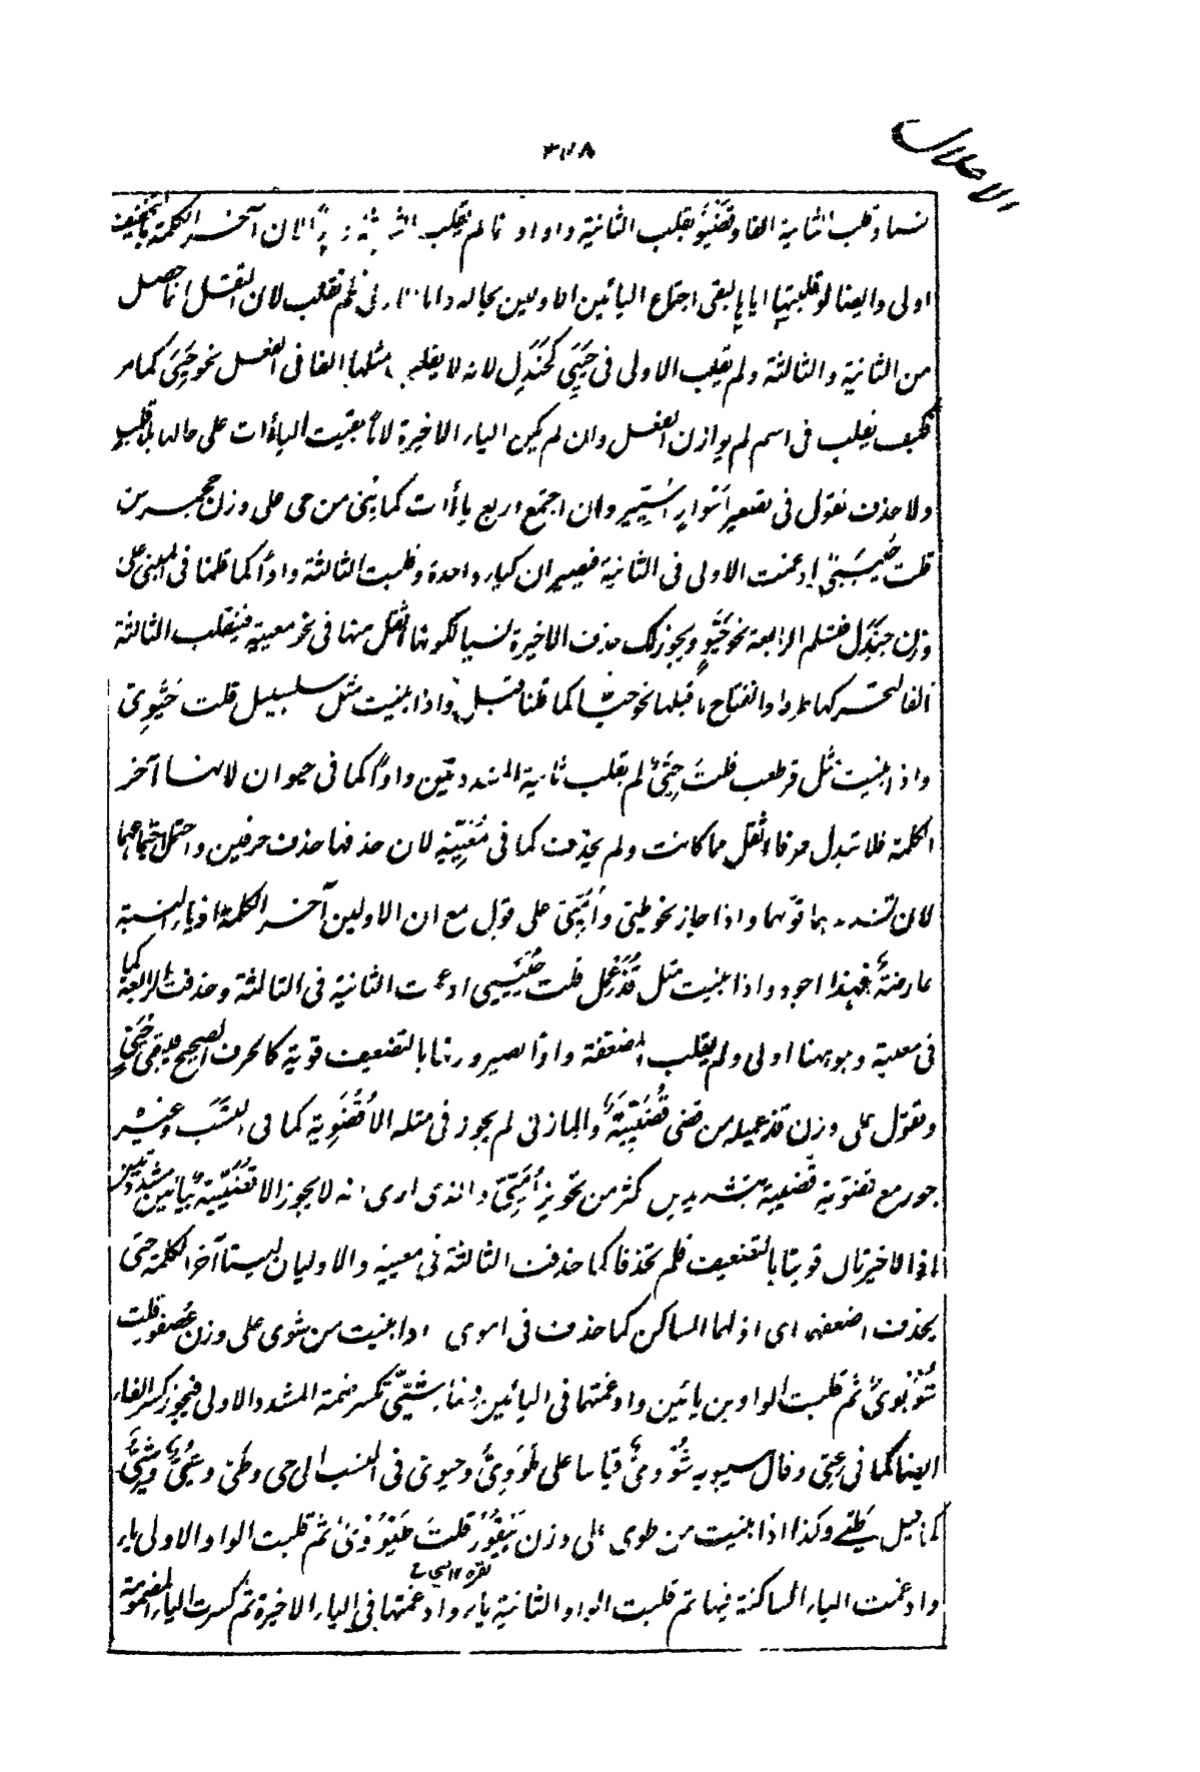 الاعلال
٣٧٨
قلب الثانية الفا وقَضَيُّو بقلب الثانية واوا و لم تقلب لان آخر الكلمة بالتخفيف
اولى وايضا لو قلبتها ايا يا لبقى اجتماع اليائين الاوليين بحاله واما فلم تقلب لان الثقل انما حصل
من الثانية والثالثة ولم يقلب الاولى فى حَيَيِّى كجَنَدِل لانه لا يقلب مثلها الفا فى الفعل نحو حَيِىَ كما مر
فكيف يقلب فى اسم لم يوازن الفعل وان لم يكن الياء الاخيرة بقيت الياءات على حالها بلا قلب
ولا حذف نقول فى تصغير وان اجتمع اربع ياءات كما بُنِىَ من حى على وزن جحمرش
قلت ادغمت الاولى فى الثانية فيصيران كياء واحدة وقلبت الثالثة واوا كما قلنا فى المبنى على
وزن جَنَدِل فتسلم الرابعة نحو حَيَّوٍ ويجوز لك حذف الاخيرة نسيا لكونها اثقل منها فى نحو معيية فينقلب الثالثة
الفا لتحركها طردا وانفتاح ما قبلها نحو كما قلنا قبل واذا بنيت مثل سلسبيل قلت حَيَّوِىّ
واذا بنيت مثل قرطعب قلت حِيَّىّ لم يقلب ثانية المشددتين واوا كما فى حيوان لانها آخر
الكلمة فلا تبدل حرفا اثقل مما كانت ولم يحذف كما فى مُعَيِّيَة لان حذفها حذف حرفين واحتمل اجتماعهما
لان تشديدهما قوّهما واذا جاز نحو طيّى وأُمَيِّىّ على قول مع ان الاوليين آخر الكلمة اذ ياء النسبة
عارضة فهذا اجود واذا بنيت مثل قُذَعْمِل قلت ادغمت الثانية فى الثالثة وحذفت الرابعة كما
فى معيية وهو ههنا اولى ولم يقلب المضعفة واوا لصيرورتها بالتضعيف قوية كالحرف الصحيح فيبقى حُيَىٍّ
وتقول على وزن قذعميلة من قضى قُضَيِّيَّة والمازنى لم يجوز فى مثله الا قُضَوِيّة كما فى النسب وغيره
جوز مع قضوية قضيية بتشديدين كثر من تجويز أُمَيِّىّ والذى ارى انه لا يجوز الا قُضَيِّيَّة بيائين مشددتين
اذ الاخيرتان قويتا بالتضعيف فلم تحذفا كما حذفت الثالثة فى معيية والاوليان ليستا آخر الكلمة حتى
يحذف اضعفهما اى اولهما الساكن كما حذف فى اموى واذا بنيت من شوى على وزن عُصفور قلت
شُوْيُوىٌ ثم قلبت الواوين يائين وادغمتهما فى اليائين فصار شُيّىّ تكسر ضمة المشدد الاولى فيجوز كسر الفاء
ايضا كما فى عِتِىّ وقال سيبويه شُوْوِىّ قياسا على طَوَوِىّ وحيوى فى النسب الى حى وطىّ وعُيّىّ وشُيّىّ
كما قيل طَيّىّ وكذا اذا بنيت من طوى على وزن بَيْقُوْر قلتَ طَيْوُوْىٌ ثم قلبت الواو الاولى ياء
وادغمت الياء الساكنة فيها ثم قلبت الواو الثانية ياء وادغمتها فى الياء الاخيرة ثم كسرت الياء المضمومة